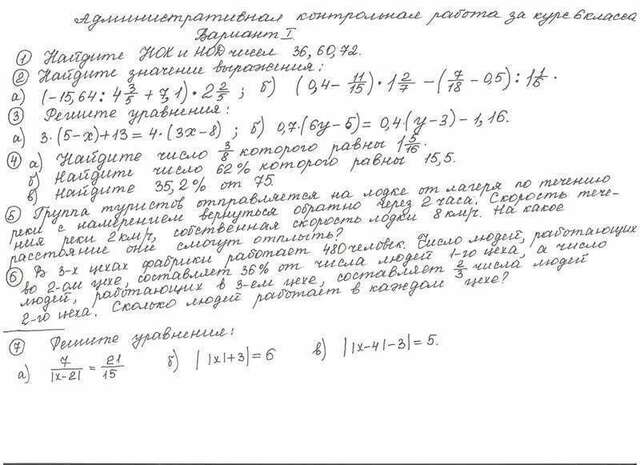 Административная контрольная работа за курс 6 класса
Вариант I
① Найдите НОК и НОД чисел 36, 60, 72.
② Найдите значение выражения:
а) (-15,64 : 4 3/5 + 7,1) · 2 2/5 ; б) (0,4 - 11/15) · 1 2/7 - (7/18 - 0,5) : 1 1/6.
③ Решите уравнения:
а) 3·(5-x)+13 = 4·(3x-8) ; б) 0,7·(6y-5) = 0,4(y-3) - 1,16.
④ а) Найдите число 3/8 которого равны 1 5/16.
б) Найдите число 62% которого равны 15,5.
в) Найдите 35,2% от 75.
⑤ Группа туристов отправляется на лодке от лагеря по течению
реки с намерением вернуться обратно через 2 часа. Скорость тече-
ния реки 2 км/ч, собственная скорость лодки 8 км/ч. На какое
расстояние они смогут отплыть?
⑥ В 3-х цехах фабрики работает 480 человек. Число людей, работающих
во 2-ом цехе, составляет 36% от числа людей 1-го цеха, а число
людей, работающих в 3-ем цехе, составляет 2/3 числа людей
2-го цеха. Сколько людей работает в каждом цехе?
⑦ Решите уравнение:
а) 7/|x-2| = 21/15 б) | |x|+3| = 6 в) | |x-4|-3| = 5.